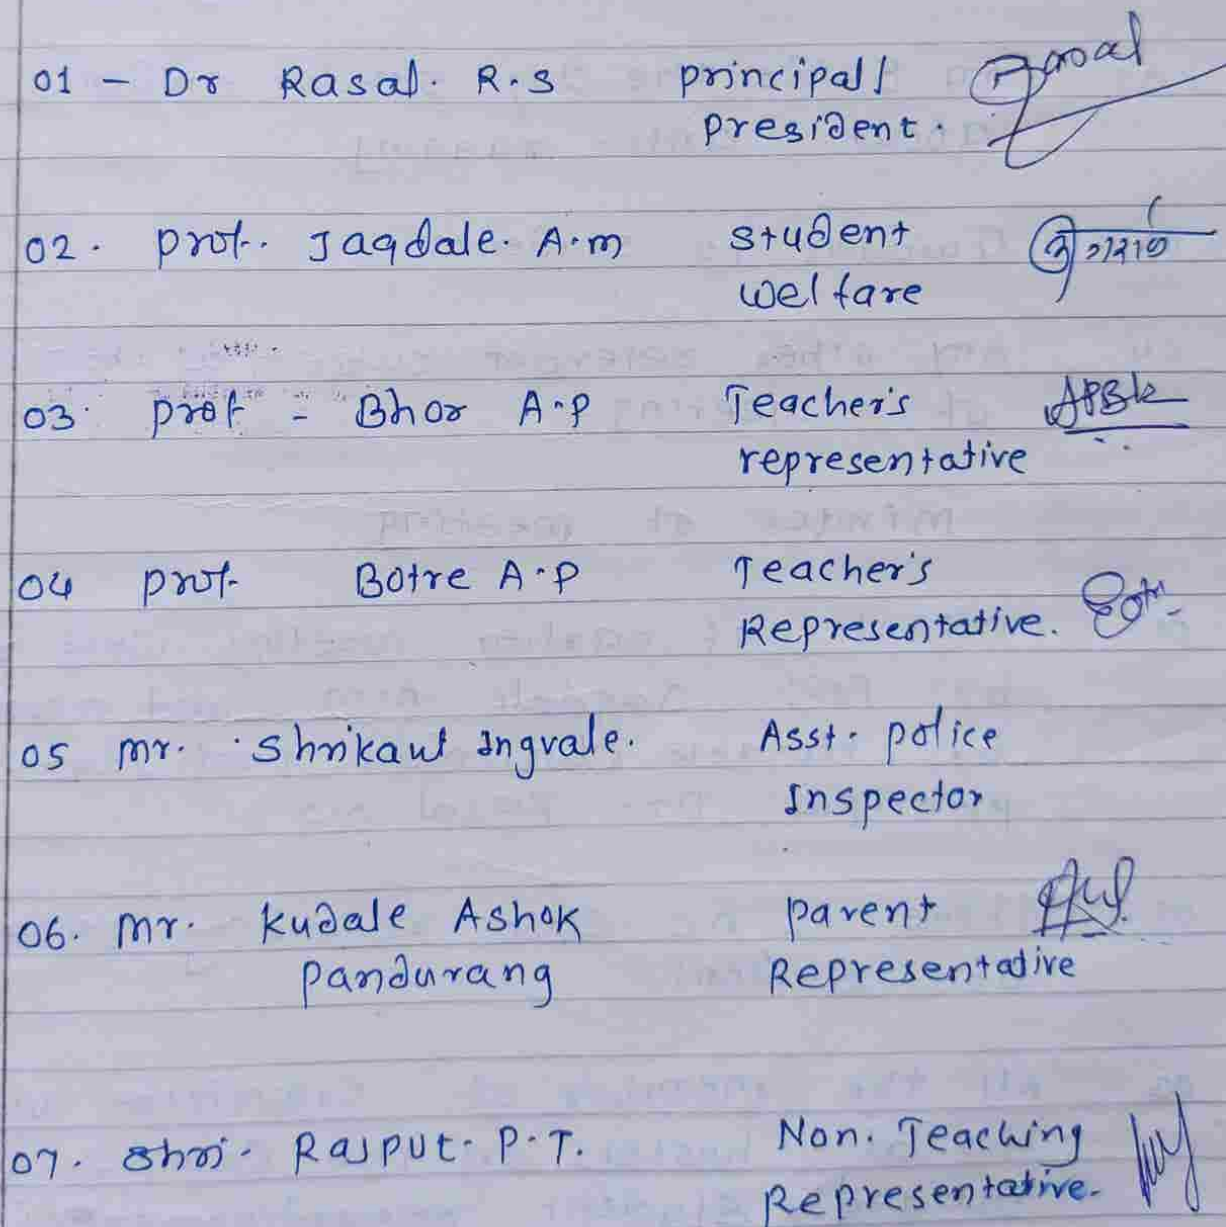 01 - Dr Rasal. R.S principal/
president.
02. prof. Jagdale. A.m student
welfare
03. prof - Bhor A.P Teacher's
representative
04 prof. Botre A.P Teacher's
Representative.
05 mr. Shrikant Ingvale. Asst. police
Inspector
06. mr. Kudale Ashok parent
pandurang Representative
07. Shri. Rajput. P.T. Non. Teaching
Representative.